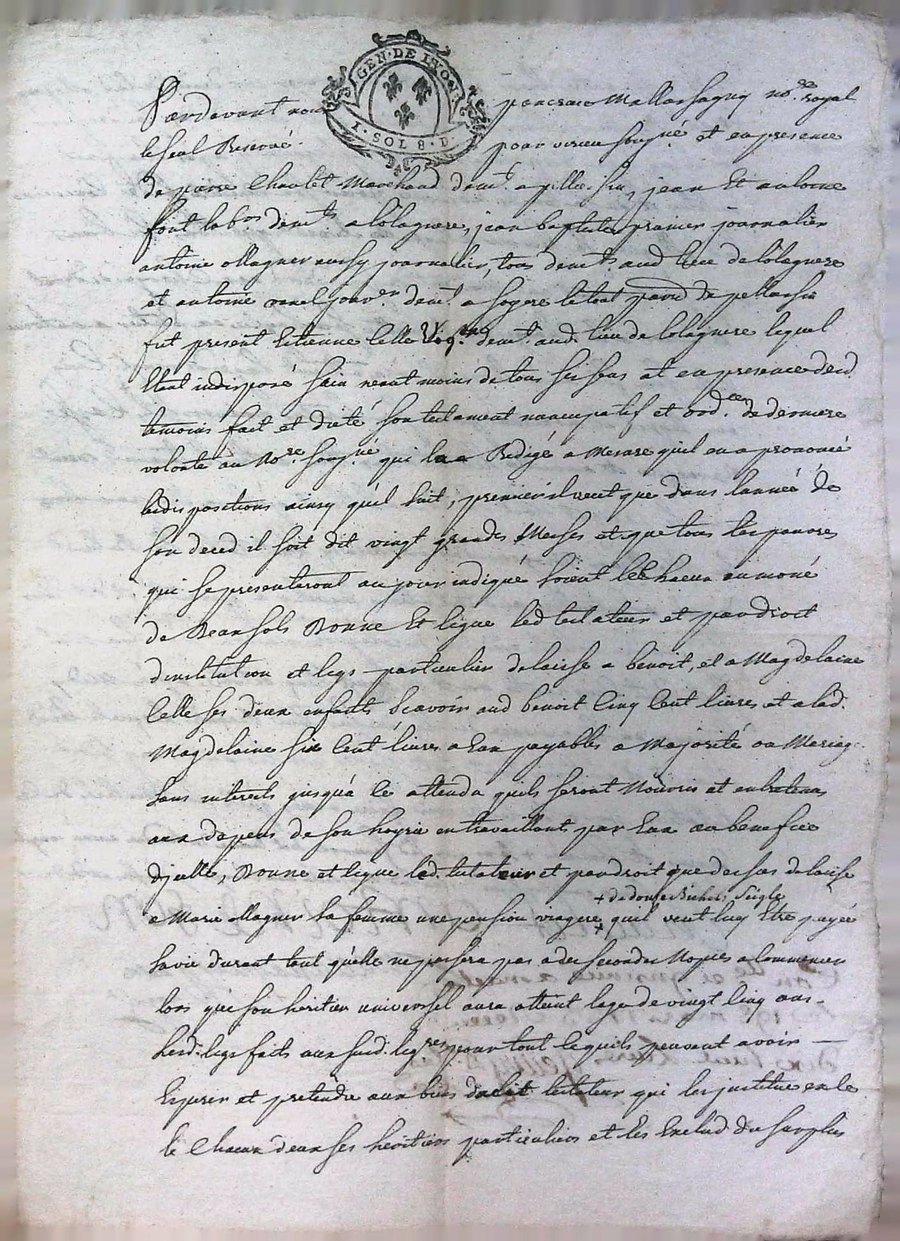 GEN. DE LYON
1. SOL 8. D.
Pardevant nous pancrace Mallassagny no.re royal
le seul Reservé pour verieu sousig.né et en presence
de pierre Chaulet Marchand dem.t a jean Et antoine
font lab.rs dem.ts a lolagnere, jean baptiste journalier
antoine Magner aussy journalier, tous dem.t aud. lieu de lolagnere
et antoine dem.t a le tout paroi.sse de pellussin
fut present Estienne Celle Vig.on dem.t aud. lieu de lolagnere lequel
Etant indisposé sain neant moins de tous ses sens et en presence desd.
temoins fait et dicté son testament nuncupatif et ord.ce de derniere
volonté au No.re sousig.né qui la Redigé a Mesure quil en a prononcé
les dispositions ainsy quil suit, premier il veut que dans lannée de
son deced il soit dit vingt grandes Messes et que tous les pauvres
qui se presenteront au jour indiqué soient Chacun aumoné
de deux sols Donne Et legue led. testateur et par droit
dinstitution et legs particulier delaisse a benoit, et a Magdelaine
Celle ses deux enfants scavoir aud. benoit Cinq Cent livres et a lad.
Magdelaine six Cent livres a Eux payables a Majorité ou Mariage
sans interets jusqua ce attendu quils seront Nourris et entretenus
aux depens de son hoyrie en travaillant par Eux au benefice
dycelle, Donne et legue led. testateur et par droit que dessus delaisse
+ de douze Bichets Seigle
a Marie Magner sa femme une pension viagere + quil veut luy Etre payée
sa vie durant tant quelle ne passera pas a des secondes Noces a Commencer
lors que son heritier universel aura atteint lage de vingt Cinq ans
lesd. legs faits aux susd. leg.res pour tout ce quils peuvent avoir
Esperer et pretendre aux biens dudit testateur qui les institue en ce
le Chacun deux ses heritiers particuliers et les Exclud du surplus